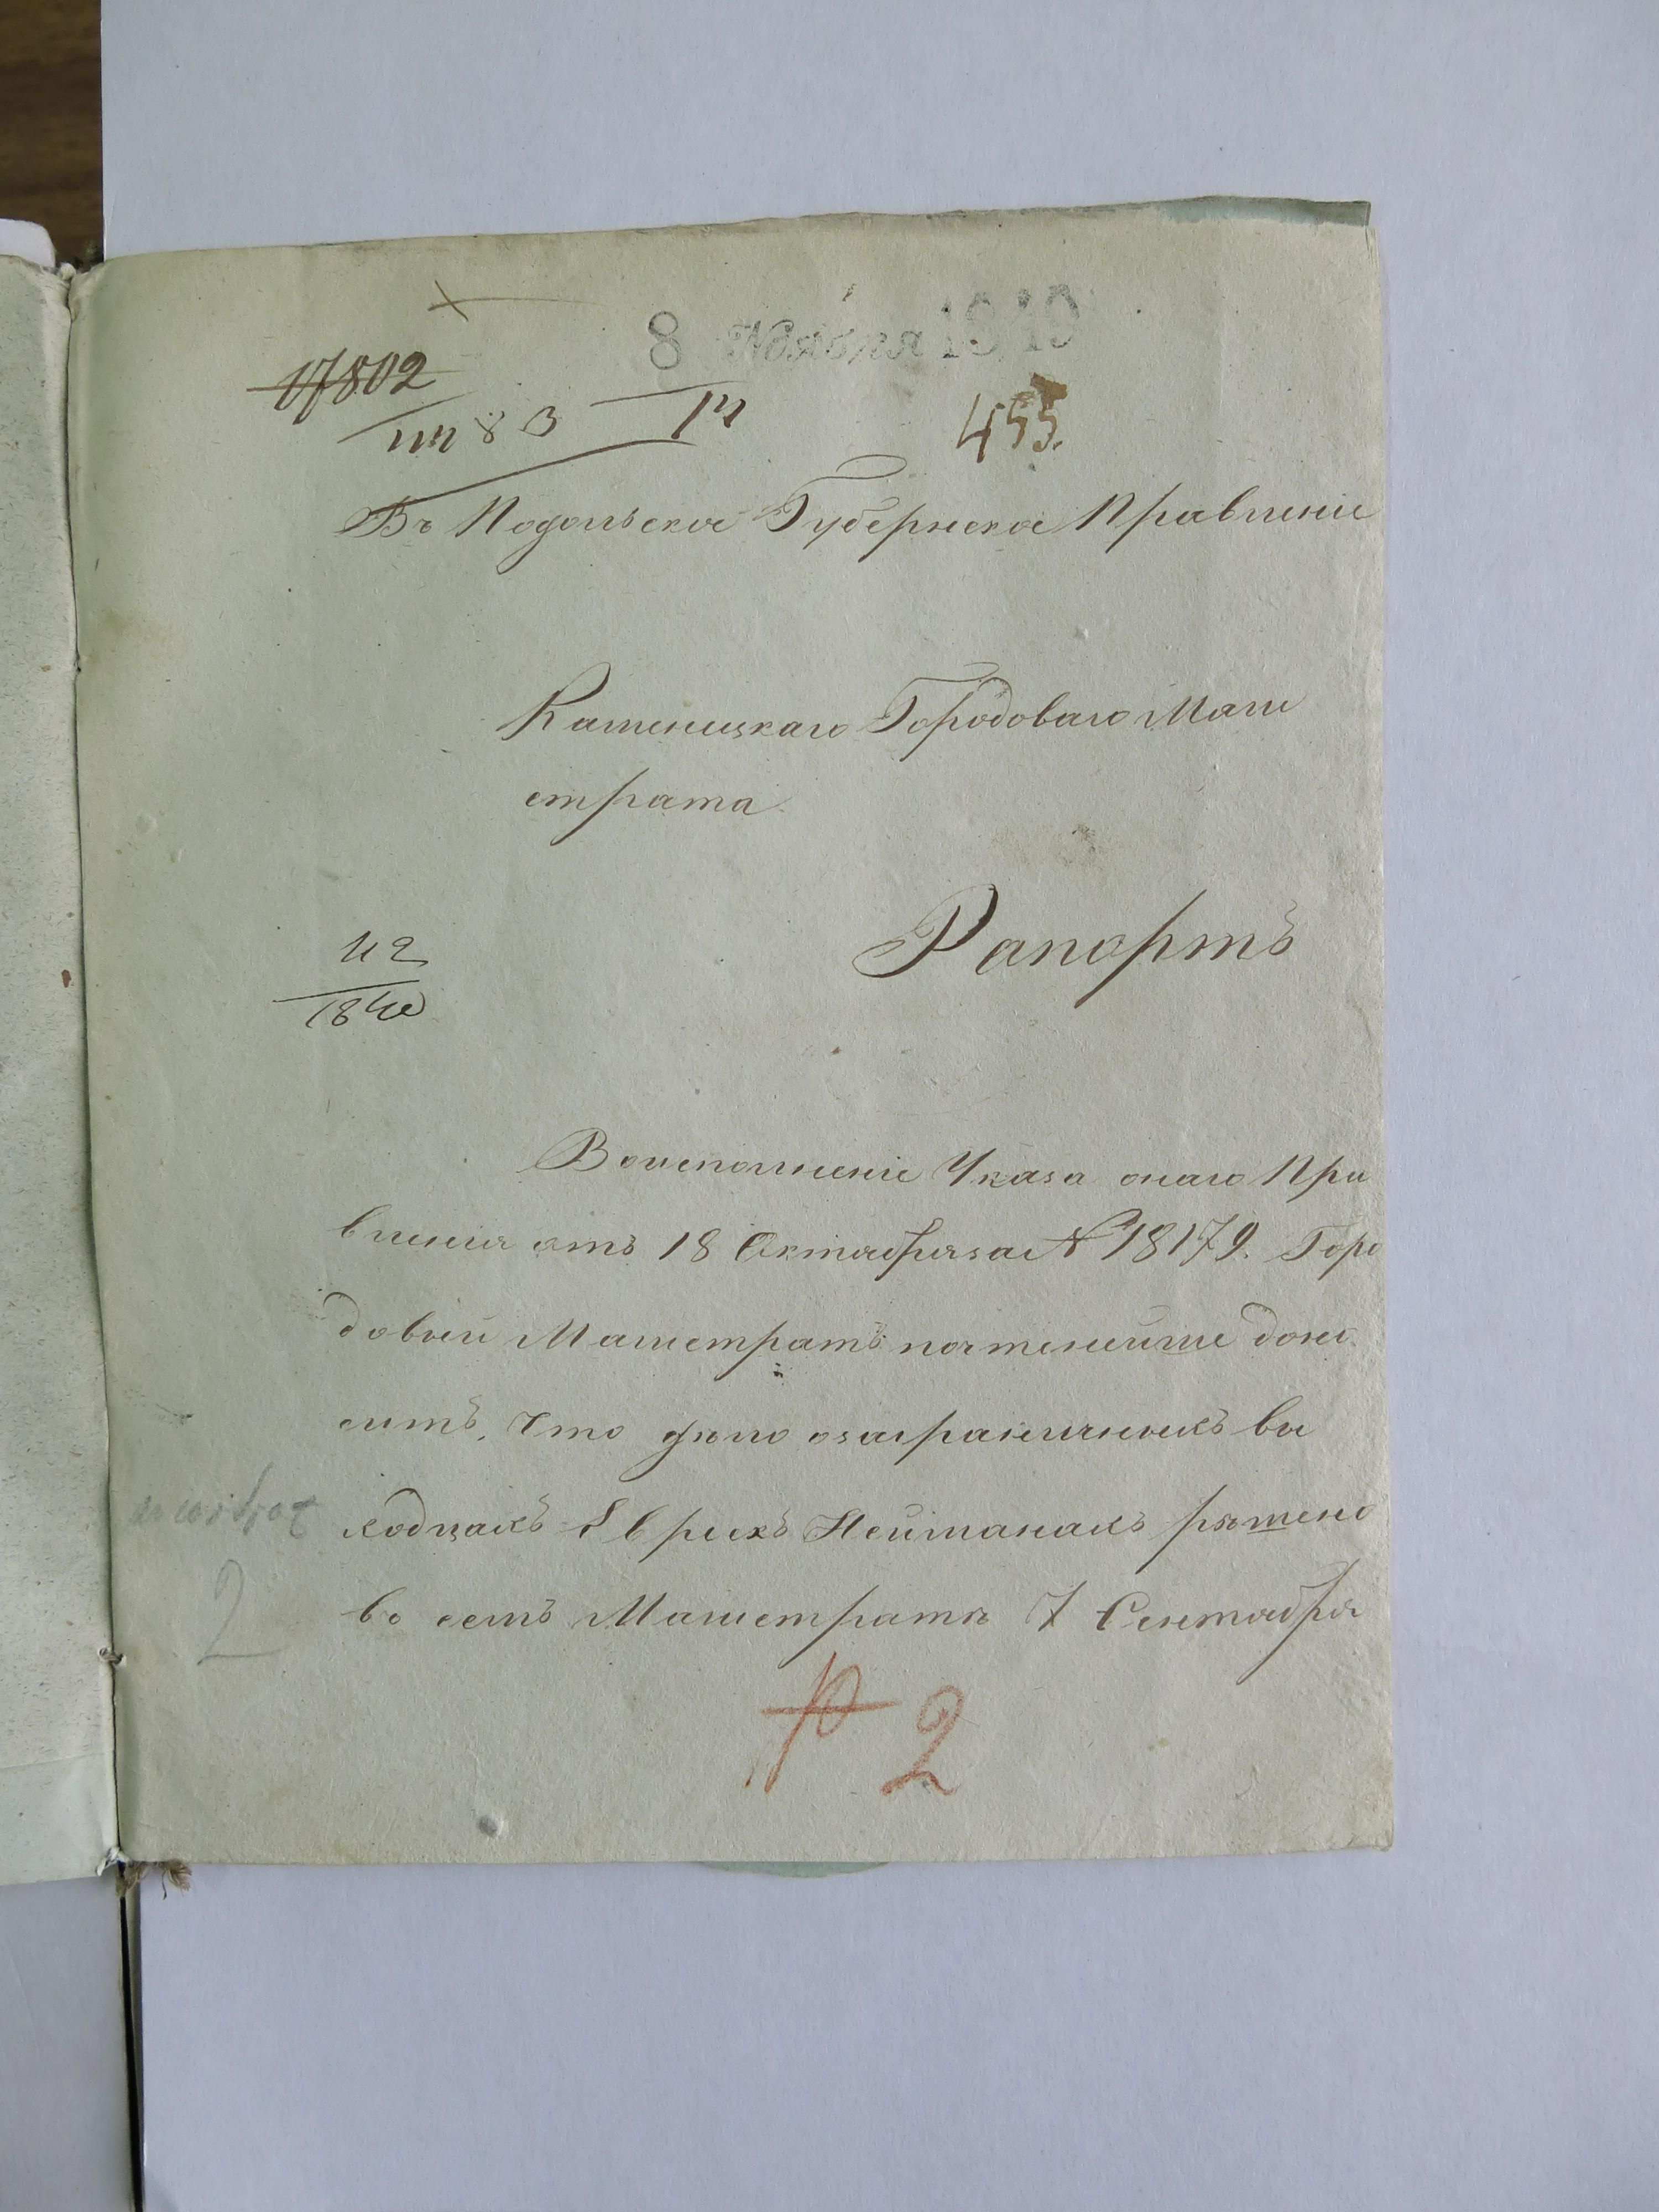 8 Ноября 1840
17802
455.
Въ Подольское Губернское Правленіе
Каменецкаго Городоваго Маги
страта
Рапортъ
1840
Во исполненіе Указа онаго Пра
вленія отъ 18 Октября за № 18179. Горо
довый Магистратъ почтенейше доно
ситъ, что дѣло о заграничныхъ вы
ходцахъ Евреяхъ Нейманахъ рѣшено
во семъ Магистратѣ 7 Сентября
2
2